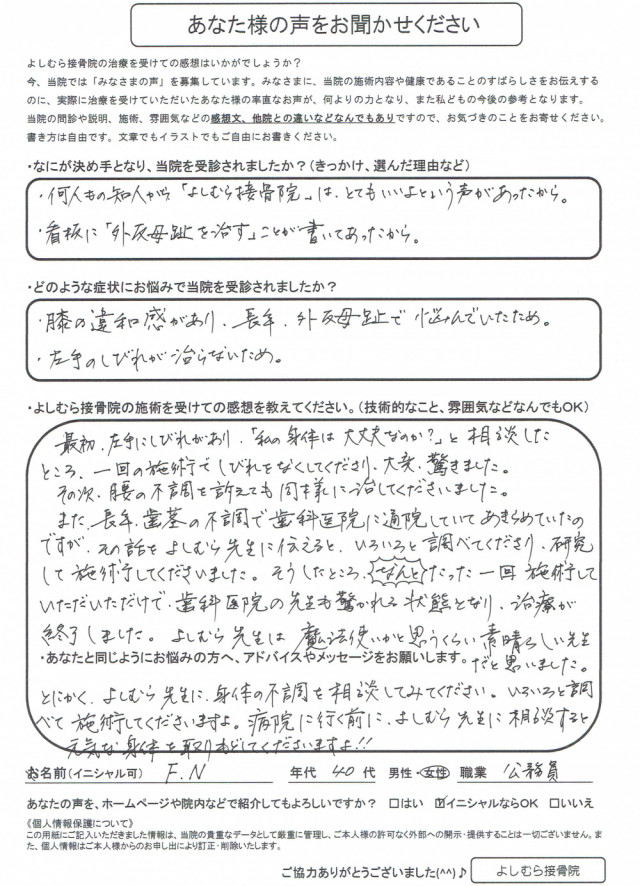 あなた様の声をお聞かせください
よしむら接骨院の治療を受けての感想はいかがでしょうか？
今、当院では「みなさまの声」を募集しています。みなさまに、当院の施術内容や健康であることのすばらしさをお伝えする
のに、実際に治療を受けていただいたあなた様の率直なお声が、何よりの力となり、また私どもの今後の参考となります。
当院の問診や説明、施術、雰囲気などの感想文、他院との違いなどなんでもありですので、お気づきのことをお寄せください。
書き方は自由です。文章でもイラストでもご自由にお書きください。
・なにが決め手となり、当院を受診されましたか？（きっかけ、選んだ理由など）
・何人もの知人から「よしむら接骨院」は、とてもいいよという声があったから。
・看板に「外反母趾を治す」ことが書いてあったから。
・どのような症状にお悩みで当院を受診されましたか？
・膝の違和感があり、長年、外反母趾で悩んでいたため。
・左手のしびれが治らないため。
・よしむら接骨院の施術を受けての感想を教えてください。（技術的なこと、雰囲気などなんでもOK）
最初、左手にしびれがあり、「私の身体は大丈夫なのか？」と相談した
ところ、一回の施術でしびれをなくしてくださり、大変、驚きました。
その次、腰の不調を訴えても同様に治してくださいました。
また、長年、歯茎の不調で歯科医院に通院していてあきらめていたの
ですが、その話をよしむら先生に伝えると、いろいろと調べてくださり、研究
して施術してくださいました。そうしたところ、なんとたった一回施術して
いただいただけで、歯科医院の先生も驚かれる状態となり、治療が
終了しました。よしむら先生は魔法使いかと思うくらい素晴らしい先生
だと思いました。
・あなたと同じようにお悩みの方へ、アドバイスやメッセージをお願いします。
とにかく、よしむら先生に、身体の不調を相談してみてください。いろいろと調
べて施術してくださいますよ。病院に行く前に、よしむら先生に相談すると
元気な身体を取りもどしてくださいますよ!!
お名前（イニシャル可） F.N 年代 40代 男性・女性 職業 公務員
あなたの声を、ホームページや院内などで紹介してもよろしいですか？ □はい ☑イニシャルならOK □いいえ
《個人情報保護について》
この用紙にご記入いただきました情報は、当院の貴重なデータとして厳重に管理し、ご本人様の許可なく外部への開示・提供することは一切ございません。ま
た、個人情報はご本人様からのお申し出により訂正・削除いたします。
ご協力ありがとうございました(^^)♪ よしむら接骨院